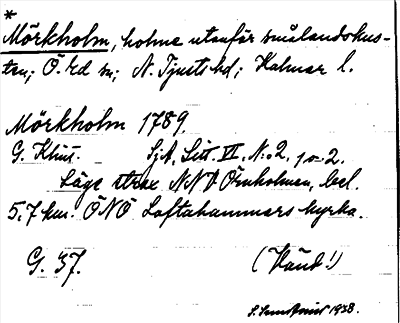 *
Mörkholm, holme utanför smålandskus-
ten; Ö. Ed sn; N. Tjusts hd; Kalmar l.
Mörkholm 1789.
G. Klint. SjA, Litt. VI, N:o 2, 1 o 2.
Läge strax NNV Örnholmen, bel.
5,7 km. ÖNÖ Loftahammars kyrka.
G. 37. (Vänd!)
1938.